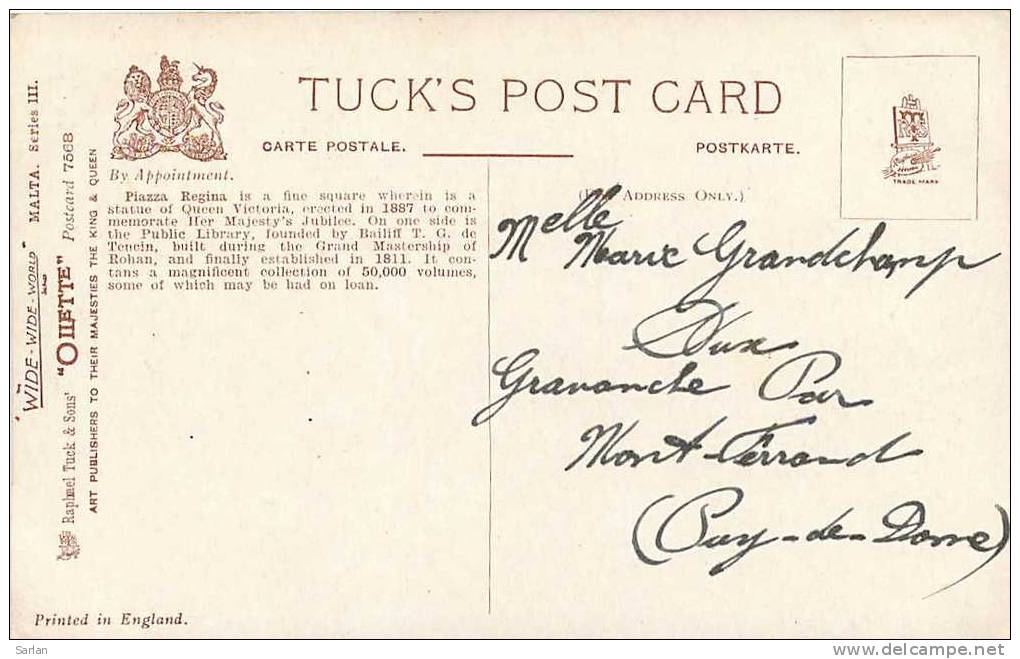 "WIDE-WIDE-WORLD"
MALTA. Series III.
Raphael Tuck & Sons' "OILETTE" Postcard 7568
ART PUBLISHERS TO THEIR MAJESTIES THE KING & QUEEN
By Appointment.
TUCK'S POST CARD
CARTE POSTALE.
POSTKARTE.
TRADE MARK
Piazza Regina is a fine square wherein is a
statue of Queen Victoria, erected in 1887 to com-
memorate Her Majesty's Jubilee. On one side is
the Public Library, founded by Bailiff T. G. de
Tencin, built during the Grand Mastership of
Rohan, and finally established in 1811. It con-
tans a magnificent collection of 50,000 volumes,
some of which may be had on loan.
Address Only.)
Melle
Marie Grandchamp
Aux
Gravanche Par
Mont-Ferrand
(Puy-de-Dome)
Printed in England.
Sarlan
www.delcampe.net